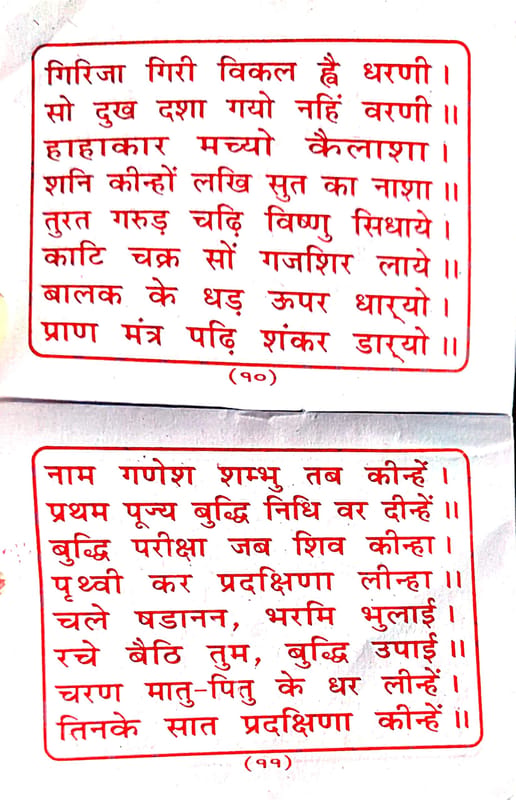 गिरिजा गिरी विकल ह्वै धरणी ।
सो दुख दशा गयो नहिं वरणी ॥
हाहाकार मच्यो कैलाशा ।
शनि कीन्हों लखि सुत का नाशा ॥
तुरत गरुड़ चढ़ि विष्णु सिधाये ।
काटि चक्र सों गजशिर लाये ॥
बालक के धड़ ऊपर धार्‌यो ।
प्राण मंत्र पढ़ि शंकर डार्‌यो ॥
(१०)
नाम गणेश शम्भु तब कीन्हें ।
प्रथम पूज्य बुद्धि निधि वर दीन्हें ॥
बुद्धि परीक्षा जब शिव कीन्हा ।
पृथ्वी कर प्रदक्षिणा लीन्हा ॥
चले षडानन, भरमि भुलाई ।
रचे बैठि तुम, बुद्धि उपाई ॥
चरण मातु-पितु के धर लीन्हें ।
तिनके सात प्रदक्षिणा कीन्हें ॥
(११)